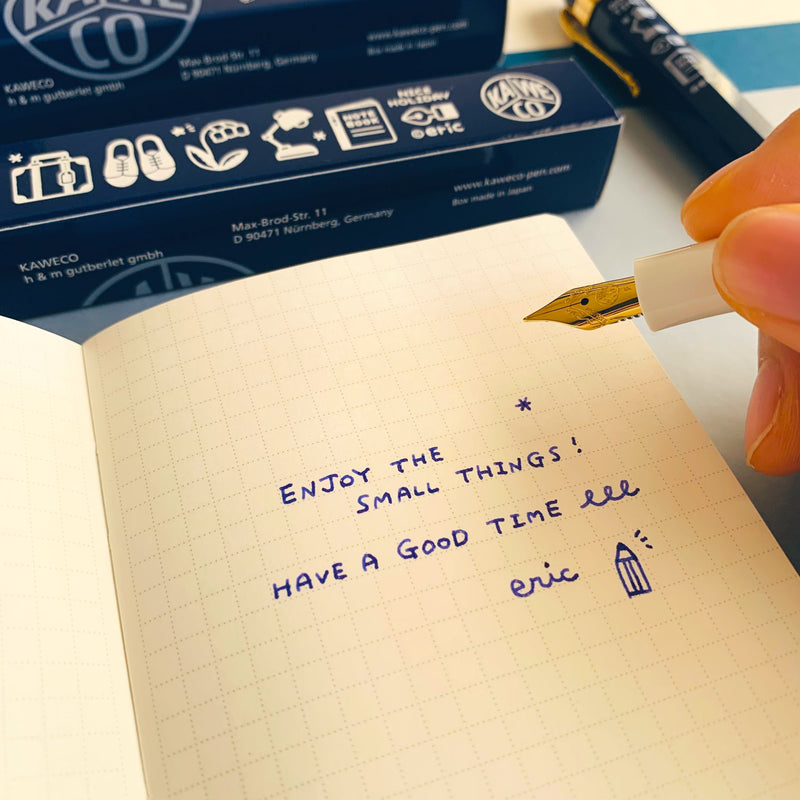 KAWE
CO
KAWECO
h & m gutberlet gmbh
Max-Brod-Str. 11
D 90471 Nürnberg, Germany
www.kaweco-pen.com
Box made in Japan
NOTE
BOOK
NICE
HOLIDAY
©eric
KAWE
CO
KAWECO
h & m gutberlet gmbh
Max-Brod-Str. 11
D 90471 Nürnberg, Germany
www.kaweco-pen.com
Box made in Japan
ENJOY THE
SMALL THINGS!
HAVE A GOOD TIME
eric